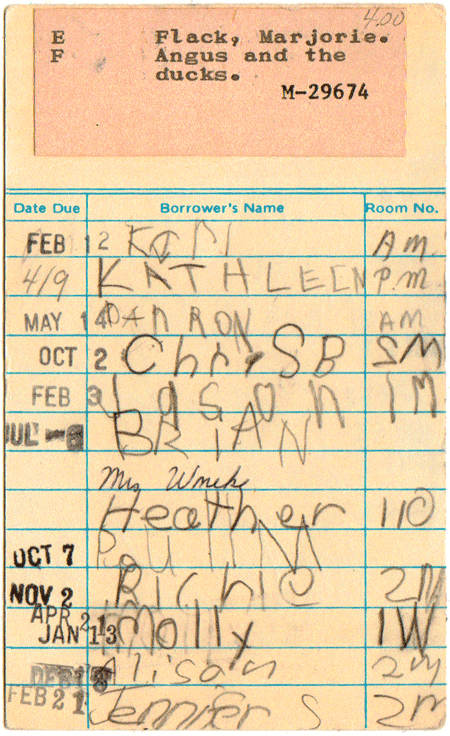 4.00
E Flack, Marjorie.
F Angus and the
ducks.
M-29674
Date Due Borrower's Name Room No.
FEB 12 KIM A.M.
4/9 KATHLEEN P.M.
MAY 14 DARRON AM
OCT 2 Chris B 2M
FEB 3 Jason 1M
JUL -6 BRIAN
Mrs
Heather 110
OCT 7
NOV 2 Richie 2M
APR 21
JAN 13 Molly 1W
FEB 18 Alison 2M
FEB 21 Jennifer S 2M